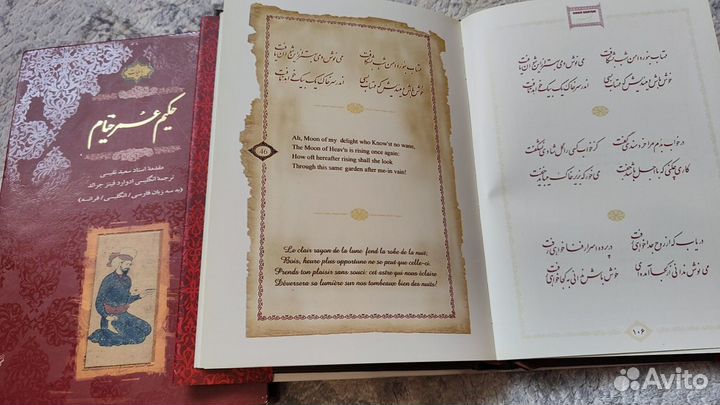 حکیم عمر خیام
مقدمهٔ استاد سعید نفیسی
ترجمهٔ انگلیسی ادوارد فیتز جرالد
(به سه زبان فارسی / انگلیسی / فرانسه)
مهتاب بنور دامن شب بشکافت می نوش دمی بهتر ازین نتوان یافت
خوش باش و میندیش که مهتاب بسی اندر سر خاک یک بیک خواهد تافت
46
Ah, Moon of my delight who Know'st no wane,
The Moon of Heav'n is rising once again:
How oft hereafter rising shall she look
Through this same garden after me-in vain!
Le clair rayon de la lune fend la robe de la nuit;
Bois, heure plus opportune ne se peut que celle-ci.
Prends ton plaisir sans souci: cet astre qui nous éclaire
Déversera sa lumière sur nos tombeaux bien des nuits!
OMAR KHAYAM
مهتاب بنور دامن شب بشکافت می نوش دمی بهتر ازین نتوان یافت
خوش باش و میندیش که مهتاب بسی اندر سر خاک یک بیک خواهد تافت
در خواب بدم مرا خردمندی گفت کز خواب کسی را گل شادی نشکفت
کاری چکنی که با اجل باشد جفت می خور که بزیر خاک میباید خفت
دریاب که از روح جدا خواهی رفت در پرده اسرار فنا خواهی رفت
می نوش ندانی ز کجا آمده‌ای خوش باش ندانی به کجا خواهی رفت
۱۰۶
Avito